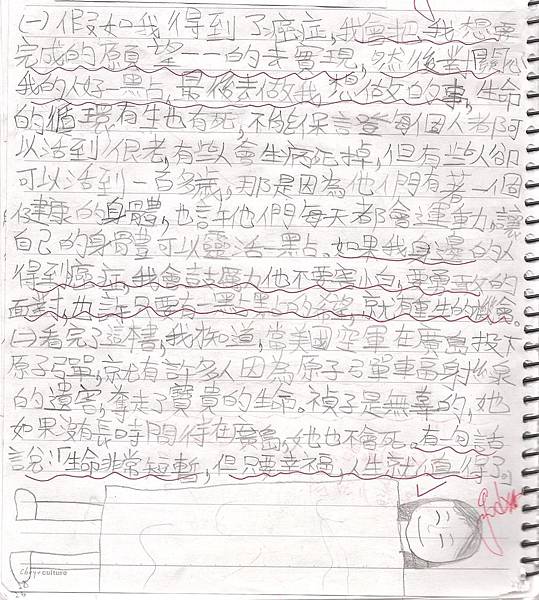 (一)假如我得到了癌症,我會把我想要
完成的願望一一的去實現,然後對關心
我的人好一點,最後去做我想做的事,生命
的循環有生也有死,不能保證每個人都可
以活到很老,有些人會生病死掉,但有些人卻
可以活到一百多歲,那是因為他們有著一個
健康的身體,也許他們每天都會運動,讓
自己的身體可以靈活一點。如果我身邊的人
得到癌症,我會鼓勵他不要害怕,要勇敢的
面對,也許只要有一點點的希望,就有重生的機會。
(二)看完了這本書,我知道,當美國空軍在廣島投下
原子彈,就有許多人因為原子彈
的遺害,奪走了寶貴的生命。禎子是無辜的,她
如果沒有長時間待在廣島,她也不會死。有一句話
說:「生命非常短暫,但只要幸福,人生就值得了」
culture